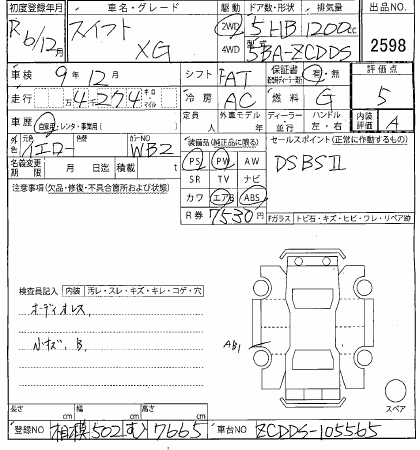 初度登録年月 車名・グレード 駆動 ドア数・形状 排気量 出品NO.
R6/12月 スイフト XG 2WD 4WD 5HB 1200cc 2598
型式 5BA-ZCDDS
車検 9年12月 シフト FAT 保証書 有・無 評価点 5
走行 万 4千274 キロ マイル 冷房 AC 燃料 G
定員 人 外車モデル 年 ディーラー・並行 ハンドル 左・右 内装評価 A
車歴 自家用・レンタ・事業用( )
外色 元色 イエロー 色替 カラーNO WB2
名義変更期限 月 日迄 積載 t
装備品(純正品に限る) セールスポイント(正常に作動するもの)
PS PW AW DSBSⅡ
SR TV ナビ
カワ エアB ABS
R券 7530円
注意事項(欠品・修復・不具合箇所および状態)
Fガラス トビ石・キズ・ヒビ・ワレ・リペア跡
検査員記入 内装 汚レ・スレ・キズ・キレ・コゲ・穴
オーディオレス
小キズ、B
AB1
スペア
長さ cm 幅 cm 高さ cm
登録NO 相模 502 む 7665 車台NO ZCDDS-105565